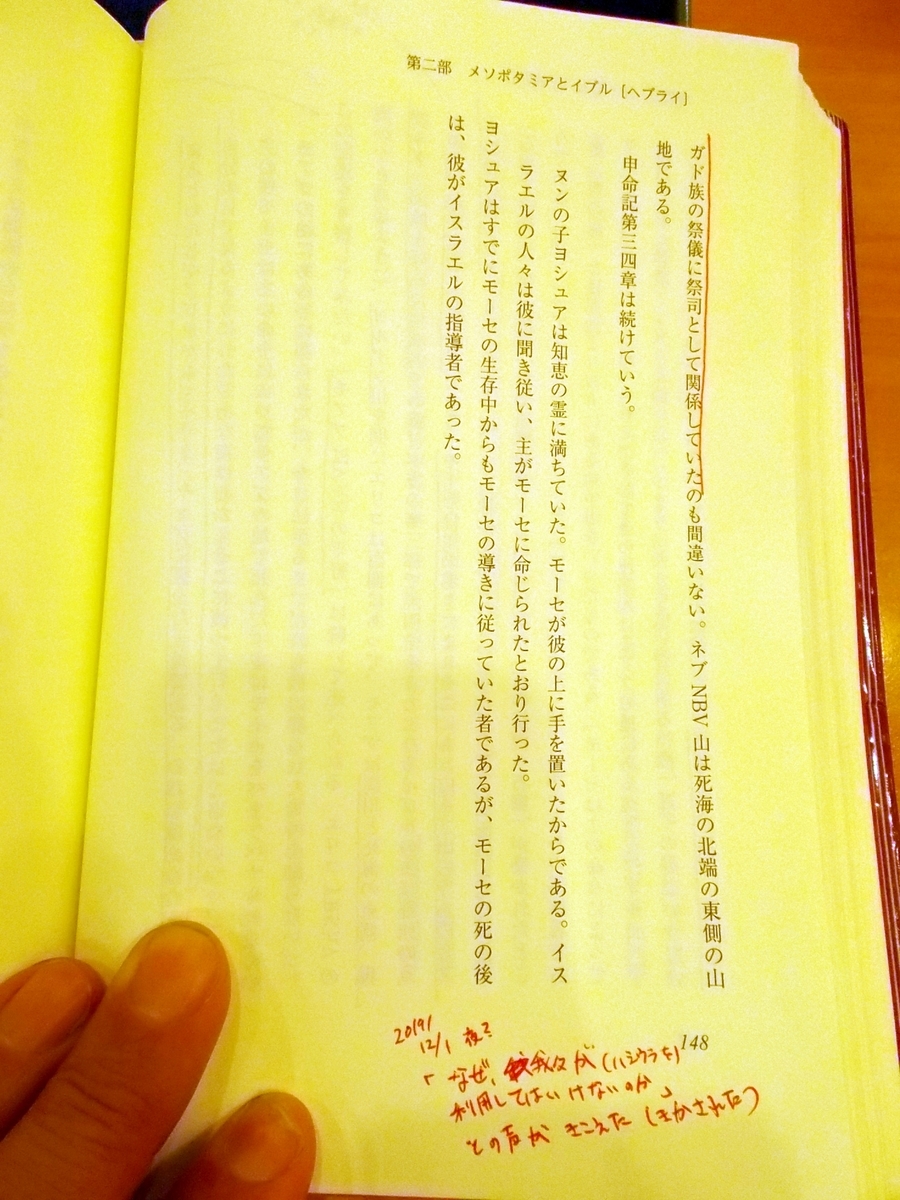 第二部 メソポタミアとイブル［ヘブライ］
ガド族の祭儀に祭司として関係していたのも間違いない。ネブNBV山は死海の北端の東側の山
地である。
申命記第三四章は続けていう。
ヌンの子ヨシュアは知恵の霊に満ちていた。モーセが彼の上に手を置いたからである。イス
ラエルの人々は彼に聞き従い、主がモーセに命じられたとおり行った。
ヨシュアはすでにモーセの生存中からもモーセの導きに従っていた者であるが、モーセの死の後
は、彼がイスラエルの指導者であった。
148
2019/
12/1 夜2
「なぜ、我々が(ハシウラを)
利用してはいけないのか」
との声が きこえた(きかされた)